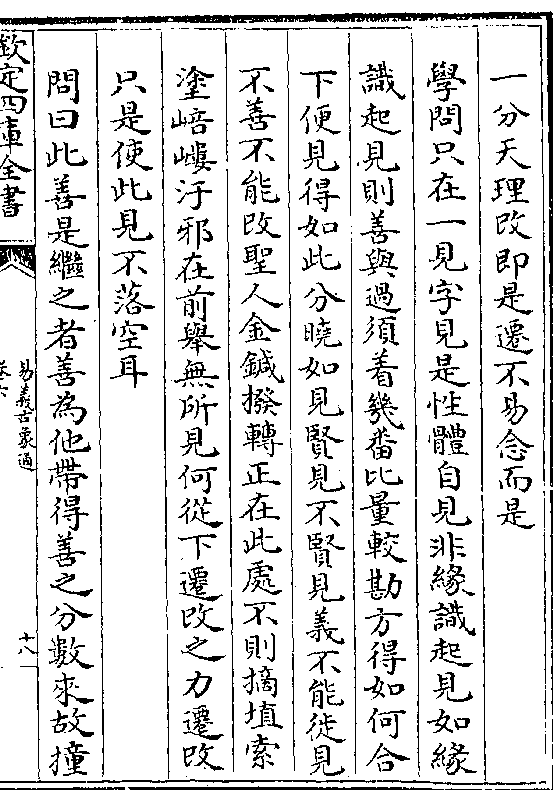 一分天理改即是遷不易念而是
學問只在一見字見是性體自見非緣識起見如緣
識起見則善與過須着幾番比量較勘方得如何合
下便見得如此分曉如見賢見不賢見義不能徙見
不善不能改聖人金鍼撥轉正在此處不則摘埴索
塗嵣嶁汙邪在前舉無所見何從下遷改之力遷改
只是使此見不落空耳
問曰此善是繼之者善為他帶得善之分數來故撞
欽定四庫全書
易義古象通
卷六
十八